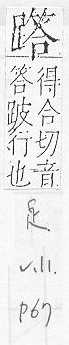 得合切音
答跛行也
足
v.11.
p67